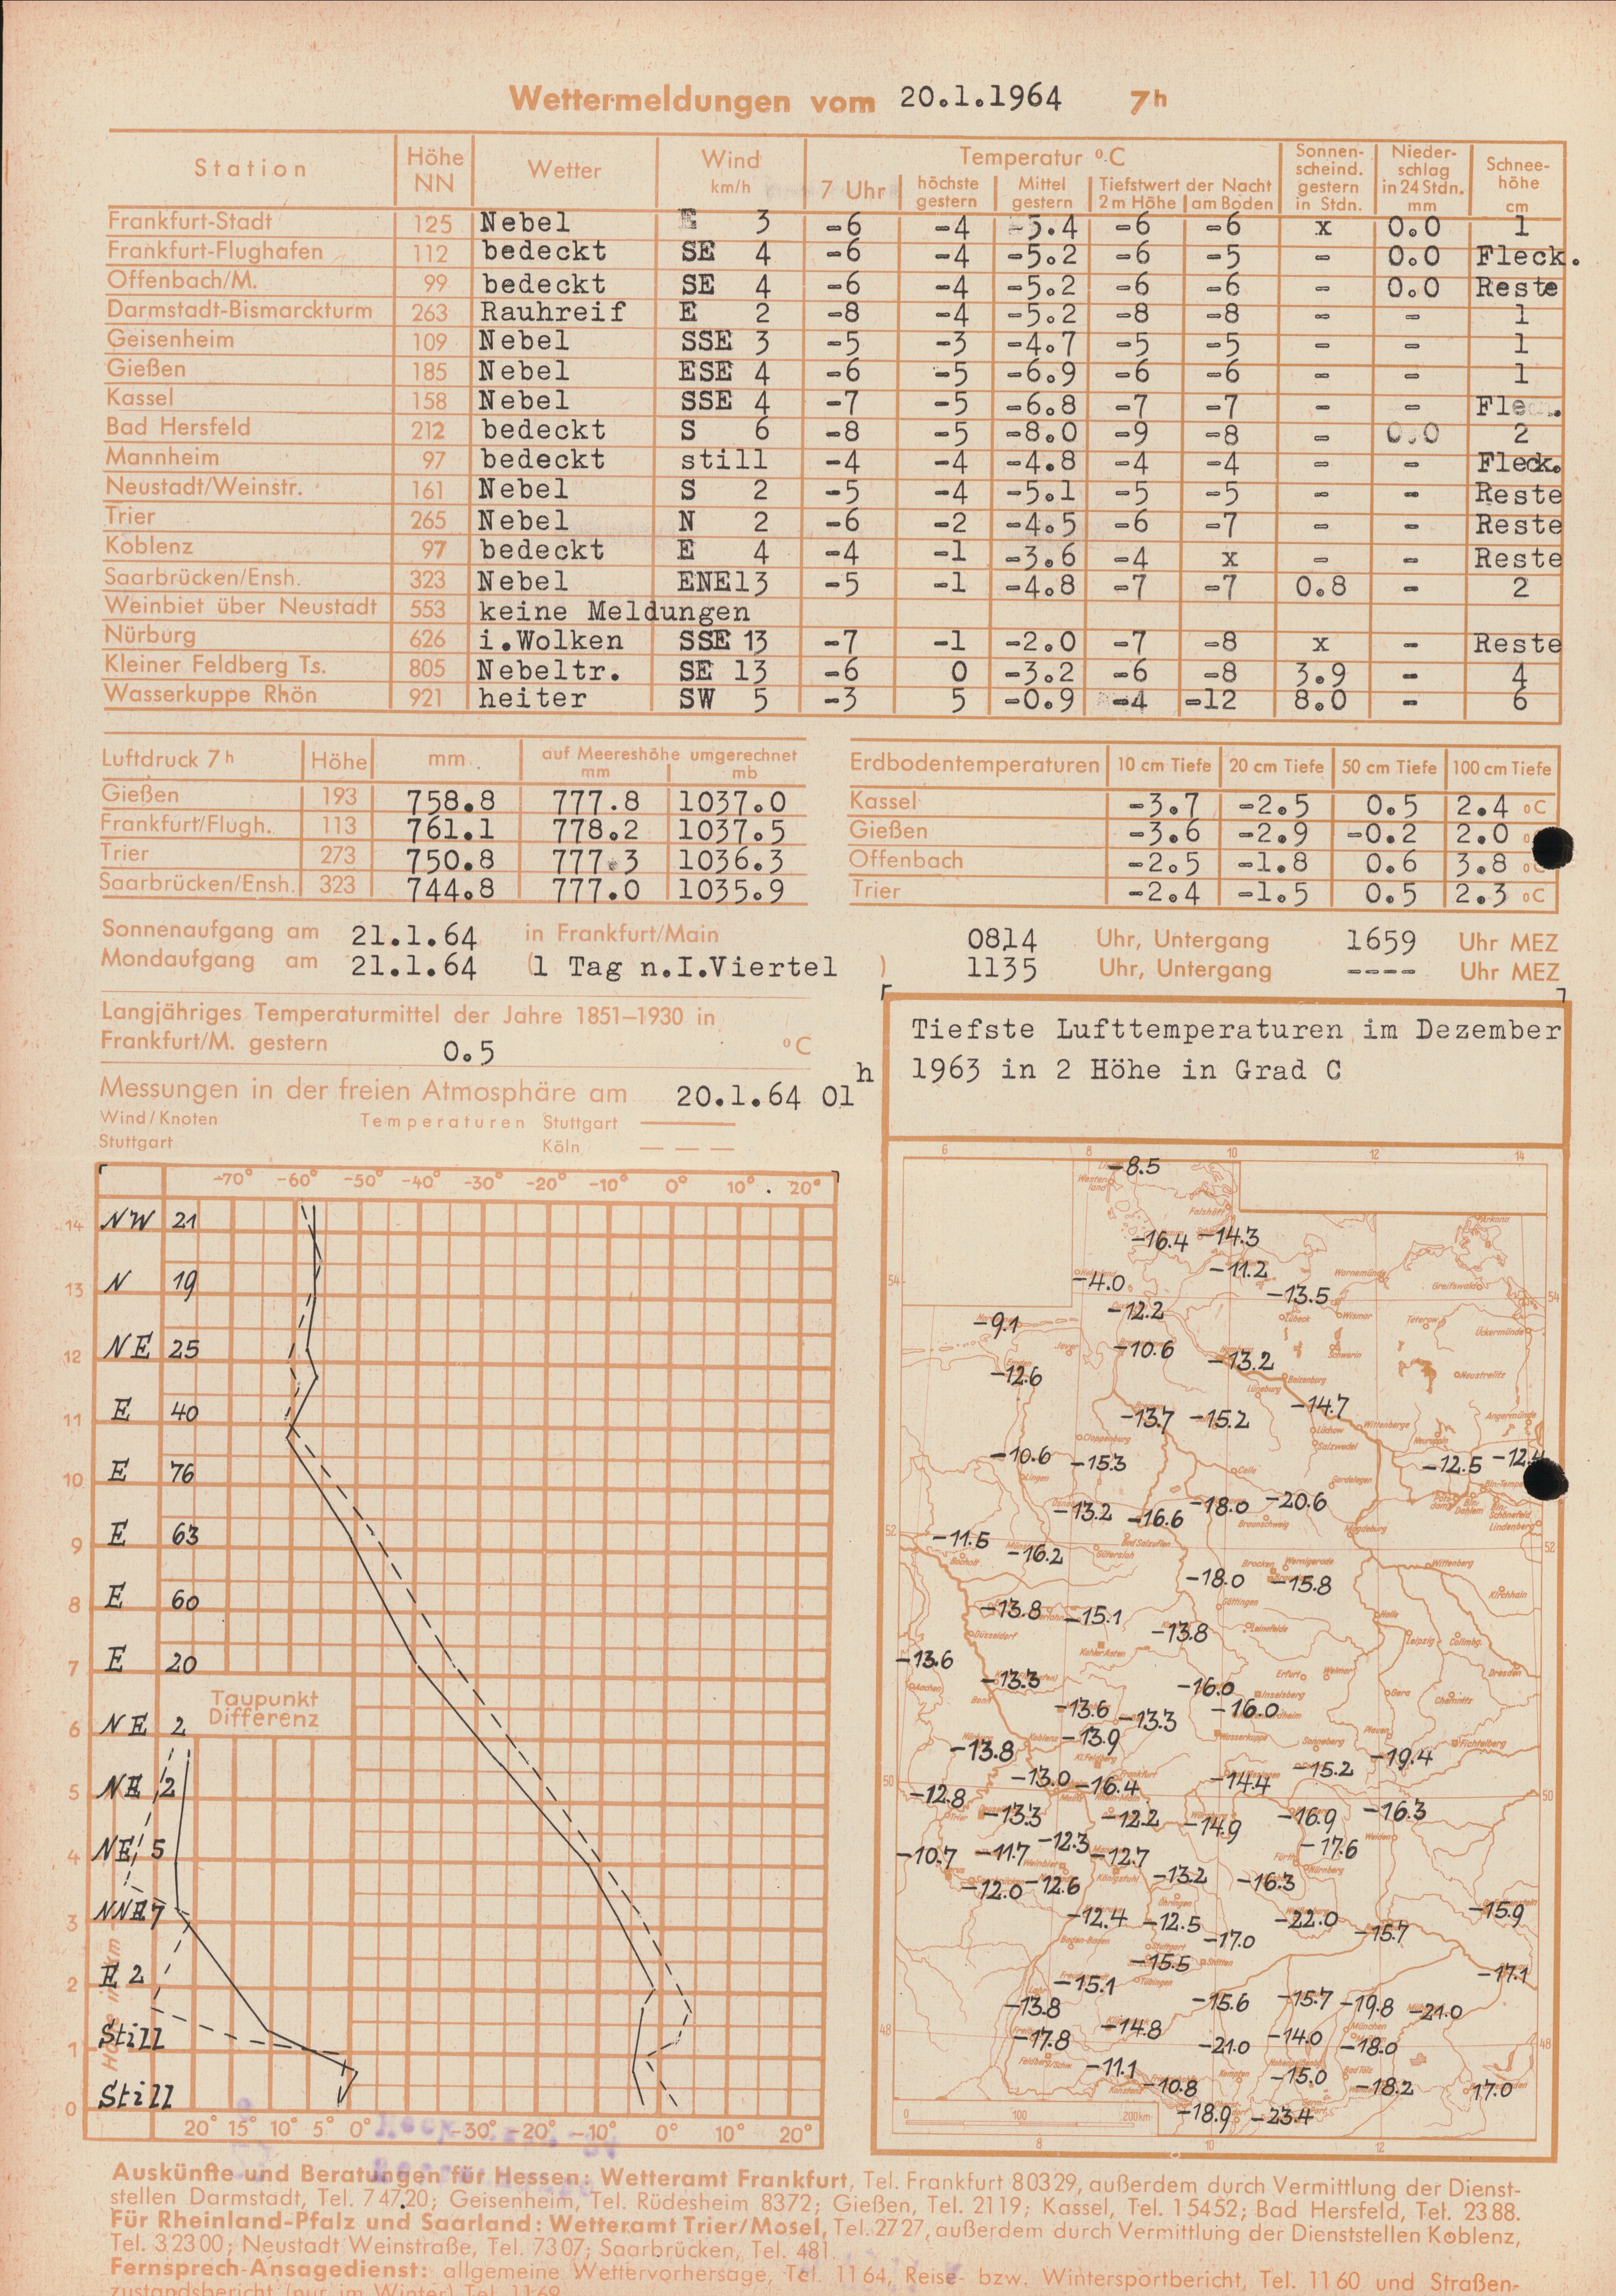 Wettermeldungen vom 20.1.1964 7h
Station Höhe NN Wetter Wind km/h Temperatur °C Sonnenscheind. gestern in Stdn. Niederschlag in 24 Stdn. mm Schneehöhe cm
7 Uhr höchste gestern Mittel gestern Tiefstwert der Nacht 2m Höhe am Boden
Frankfurt-Stadt 125 Nebel E 3 -6 -4 -5.4 -6 -6 x 0.0 1
Frankfurt-Flughafen 112 bedeckt SE 4 -6 -4 -5.2 -6 -5 - 0.0 Fleck.
Offenbach/M. 99 bedeckt SE 4 -6 -4 -5.2 -6 -6 - 0.0 Reste
Darmstadt-Bismarckturm 263 Rauhreif E 2 -8 -4 -5.2 -8 -8 - - 1
Geisenheim 109 Nebel SSE 3 -5 -3 -4.7 -5 -5 - - 1
Gießen 185 Nebel ESE 4 -6 -5 -6.9 -6 -6 - - 1
Kassel 158 Nebel SSE 4 -7 -5 -6.8 -7 -7 - - Fleck.
Bad Hersfeld 212 bedeckt S 6 -8 -5 -8.0 -9 -8 - 0.0 2
Mannheim 97 bedeckt still -4 -4 -4.8 -4 -4 - - Fleck.
Neustadt/Weinstr. 161 Nebel S 2 -5 -4 -5.1 -5 -5 - - Reste
Trier 265 Nebel N 2 -6 -2 -4.5 -6 -7 - - Reste
Koblenz 97 bedeckt E 4 -4 -1 -3.6 -4 x - - Reste
Saarbrücken/Ensh. 323 Nebel ENE13 -5 -1 -4.8 -7 -7 0.8 - 2
Weinbiet über Neustadt 553 keine Meldungen
Nürburg 626 i.Wolken SSE 13 -7 -1 -2.0 -7 -8 x - Reste
Kleiner Feldberg Ts. 805 Nebeltr. SE 13 -6 0 -3.2 -6 -8 3.9 - 4
Wasserkuppe Rhön 921 heiter SW 5 -3 5 -0.9 -4 -12 8.0 - 6
Luftdruck 7h Höhe mm auf Meereshöhe umgerechnet mm mb
Gießen 193 758.8 777.8 1037.0
Frankfurt/Flugh. 113 761.1 778.2 1037.5
Trier 273 750.8 777.3 1036.3
Saarbrücken/Ensh. 323 744.8 777.0 1035.9
Erdbodentemperaturen 10 cm Tiefe 20 cm Tiefe 50 cm Tiefe 100 cm Tiefe
Kassel -3.7 -2.5 0.5 2.4 °C
Gießen -3.6 -2.9 -0.2 2.0
Offenbach -2.5 -1.8 0.6 3.8
Trier -2.4 -1.5 0.5 2.3 °C
Sonnenaufgang am 21.1.64 in Frankfurt/Main 0814 Uhr, Untergang 1659 Uhr MEZ
Mondaufgang am 21.1.64 (1 Tag n.I.Viertel ) 1135 Uhr, Untergang ---- Uhr MEZ
Langjähriges Temperaturmittel der Jahre 1851–1930 in
Frankfurt/M. gestern 0.5 °C
Messungen in der freien Atmosphäre am 20.1.64 01h
Wind/Knoten Temperaturen Stuttgart
Stuttgart Köln
-70° -60° -50° -40° -30° -20° -10° 0° 10° 20°
14 NW 21
13 N 19
12 NE 25
11 E 40
10 E 76
9 E 63
8 E 60
7 E 20
Taupunkt
Differenz
6 NE 2
5 NE 2
4 NE 5
3 NNE 7
2 E 2
1 Still
0 Still
Höhe in km
20° 15° 10° 5° 0° -30° -20° -10° 0° 10° 20°
Tiefste Lufttemperaturen im Dezember
1963 in 2 Höhe in Grad C
6 8 10 12 14
-8.5
-16.4 -14.3
-4.0 -11.2
54 -12.2 -13.5 54
-9.1
-10.6 -13.2
-12.6
-13.7 -15.2 -14.7
-10.6 -15.3 -12.5 -12.4
-13.2 -16.6 -18.0 -20.6
52 -11.5 -16.2 52
-18.0 -15.8
-13.8 -15.1 -13.8
-13.6
-13.3 -16.0
-13.6 -13.3 -16.0
-13.8 -13.9 -19.4
50 -13.0 -16.4 -14.4 -15.2 50
-12.8 -13.3 -12.2 -14.9 -16.9 -16.3
-10.7 -11.7 -12.3 -12.7 -17.6
-12.0 -12.6 -13.2 -16.3
-12.4 -12.5 -17.0 -22.0 -15.7 -15.9
-15.5 -17.1
-15.1
-13.8 -15.6 -15.7 -19.8 -21.0
48 -17.8 -14.8 -21.0 -14.0 -18.0 48
-11.1 -10.8 -15.0 -18.2 -17.0
-18.9 -23.4
0 100 200km
8 10 12
Auskünfte und Beratungen für Hessen: Wetteramt Frankfurt, Tel. Frankfurt 80329, außerdem durch Vermittlung der Dienst-
stellen Darmstadt, Tel. 74720; Geisenheim, Tel. Rüdesheim 8372; Gießen, Tel. 2119; Kassel, Tel. 15452; Bad Hersfeld, Tel. 2388.
Für Rheinland-Pfalz und Saarland: Wetteramt Trier/Mosel, Tel. 2727, außerdem durch Vermittlung der Dienststellen Koblenz,
Tel. 32300; Neustadt Weinstraße, Tel. 7307; Saarbrücken, Tel. 481.
Fernsprech-Ansagedienst: allgemeine Wettervorhersage, Tel. 1164, Reise- bzw. Wintersportbericht, Tel. 1160 und Straßen-
zustandsbericht (nur im Winter) Tel. 1169